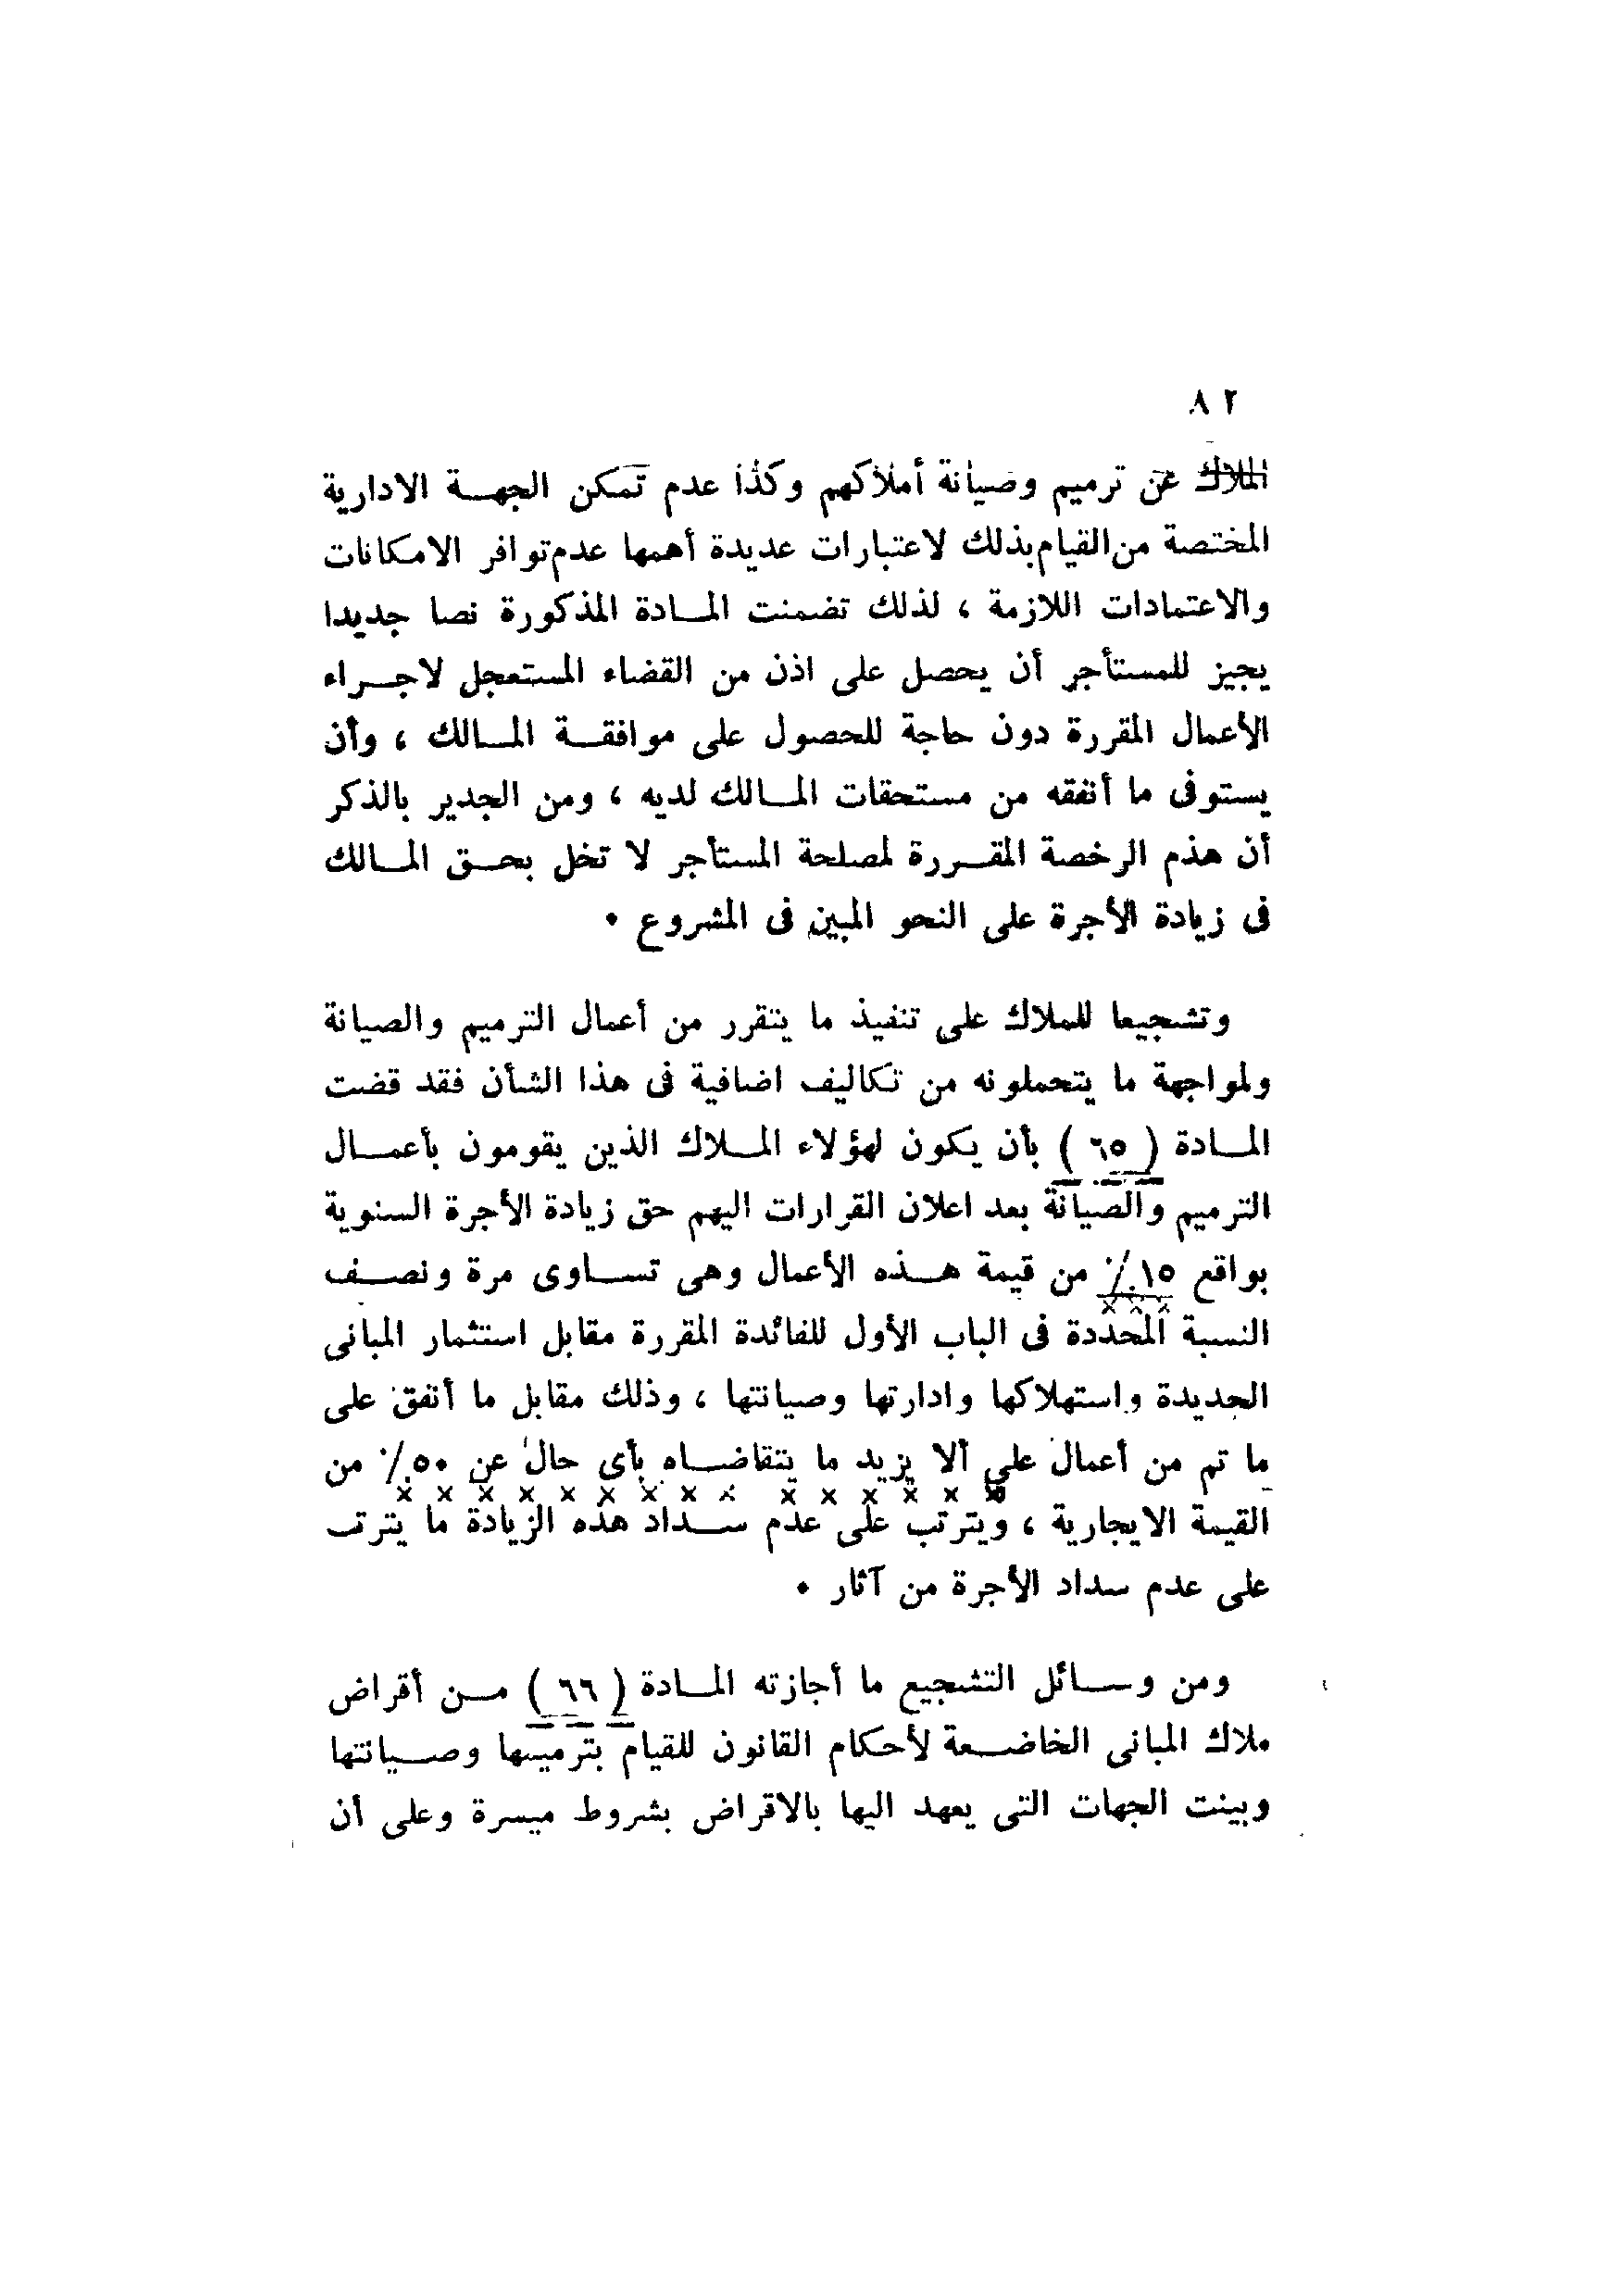 ٨٢
الملاك عن ترميم وصيانة أملاكهم وكذا عدم تمكن الجهة الادارية
المختصة من القيام بذلك لاعتبارات عديدة أهمها عدم توافر الامكانات
والاعتمادات اللازمة ، لذلك تضمنت المادة المذكورة نصا جديدا
يجيز للمستأجر أن يحصل على اذن من القضاء المستعجل لاجراء
الأعمال المقررة دون حاجة للحصول على موافقة المالك ، وأن
يستوفى ما أنفقه من مستحقات المالك لديه ، ومن الجدير بالذكر
أن هذم الرخصة المقررة لمصلحة المستأجر لا تخل بحق المالك
فى زيادة الأجرة على النحو المبين فى المشروع ٠
وتشجيعا للملاك على تنفيذ ما يتقرر من أعمال الترميم والصيانة
ولمواجهة ما يتحملونه من تكاليف اضافية فى هذا الشأن فقد قضت
المادة ( ٦٥ ) بأن يكون لهؤلاء الملاك الذين يقومون بأعمال
الترميم والصيانة بعد اعلان القرارات اليهم حق زيادة الأجرة السنوية
بواقع ١٥٪ من قيمة هذه الأعمال وهى تساوى مرة ونصف
النسبة المحددة فى الباب الأول للفائدة المقررة مقابل استثمار المبانى
الجديدة واستهلاكها وادارتها وصيانتها ، وذلك مقابل ما أنفق على
ما تم من أعمال على ألا يزيد ما يتقاضاه بأى حال عن ٥٠٪ من
القيمة الايجارية ، ويترتب على عدم سداد هذه الزيادة ما يترتب
على عدم سداد الأجرة من آثار ٠
ومن وسائل التشجيع ما أجازته المادة ( ٦٦ ) من أقراض
ملاك المبانى الخاضعة لأحكام القانون للقيام بترميمها وصيانتها
وبينت الجهات التى يعهد اليها بالاقراض بشروط ميسرة وعلى أن